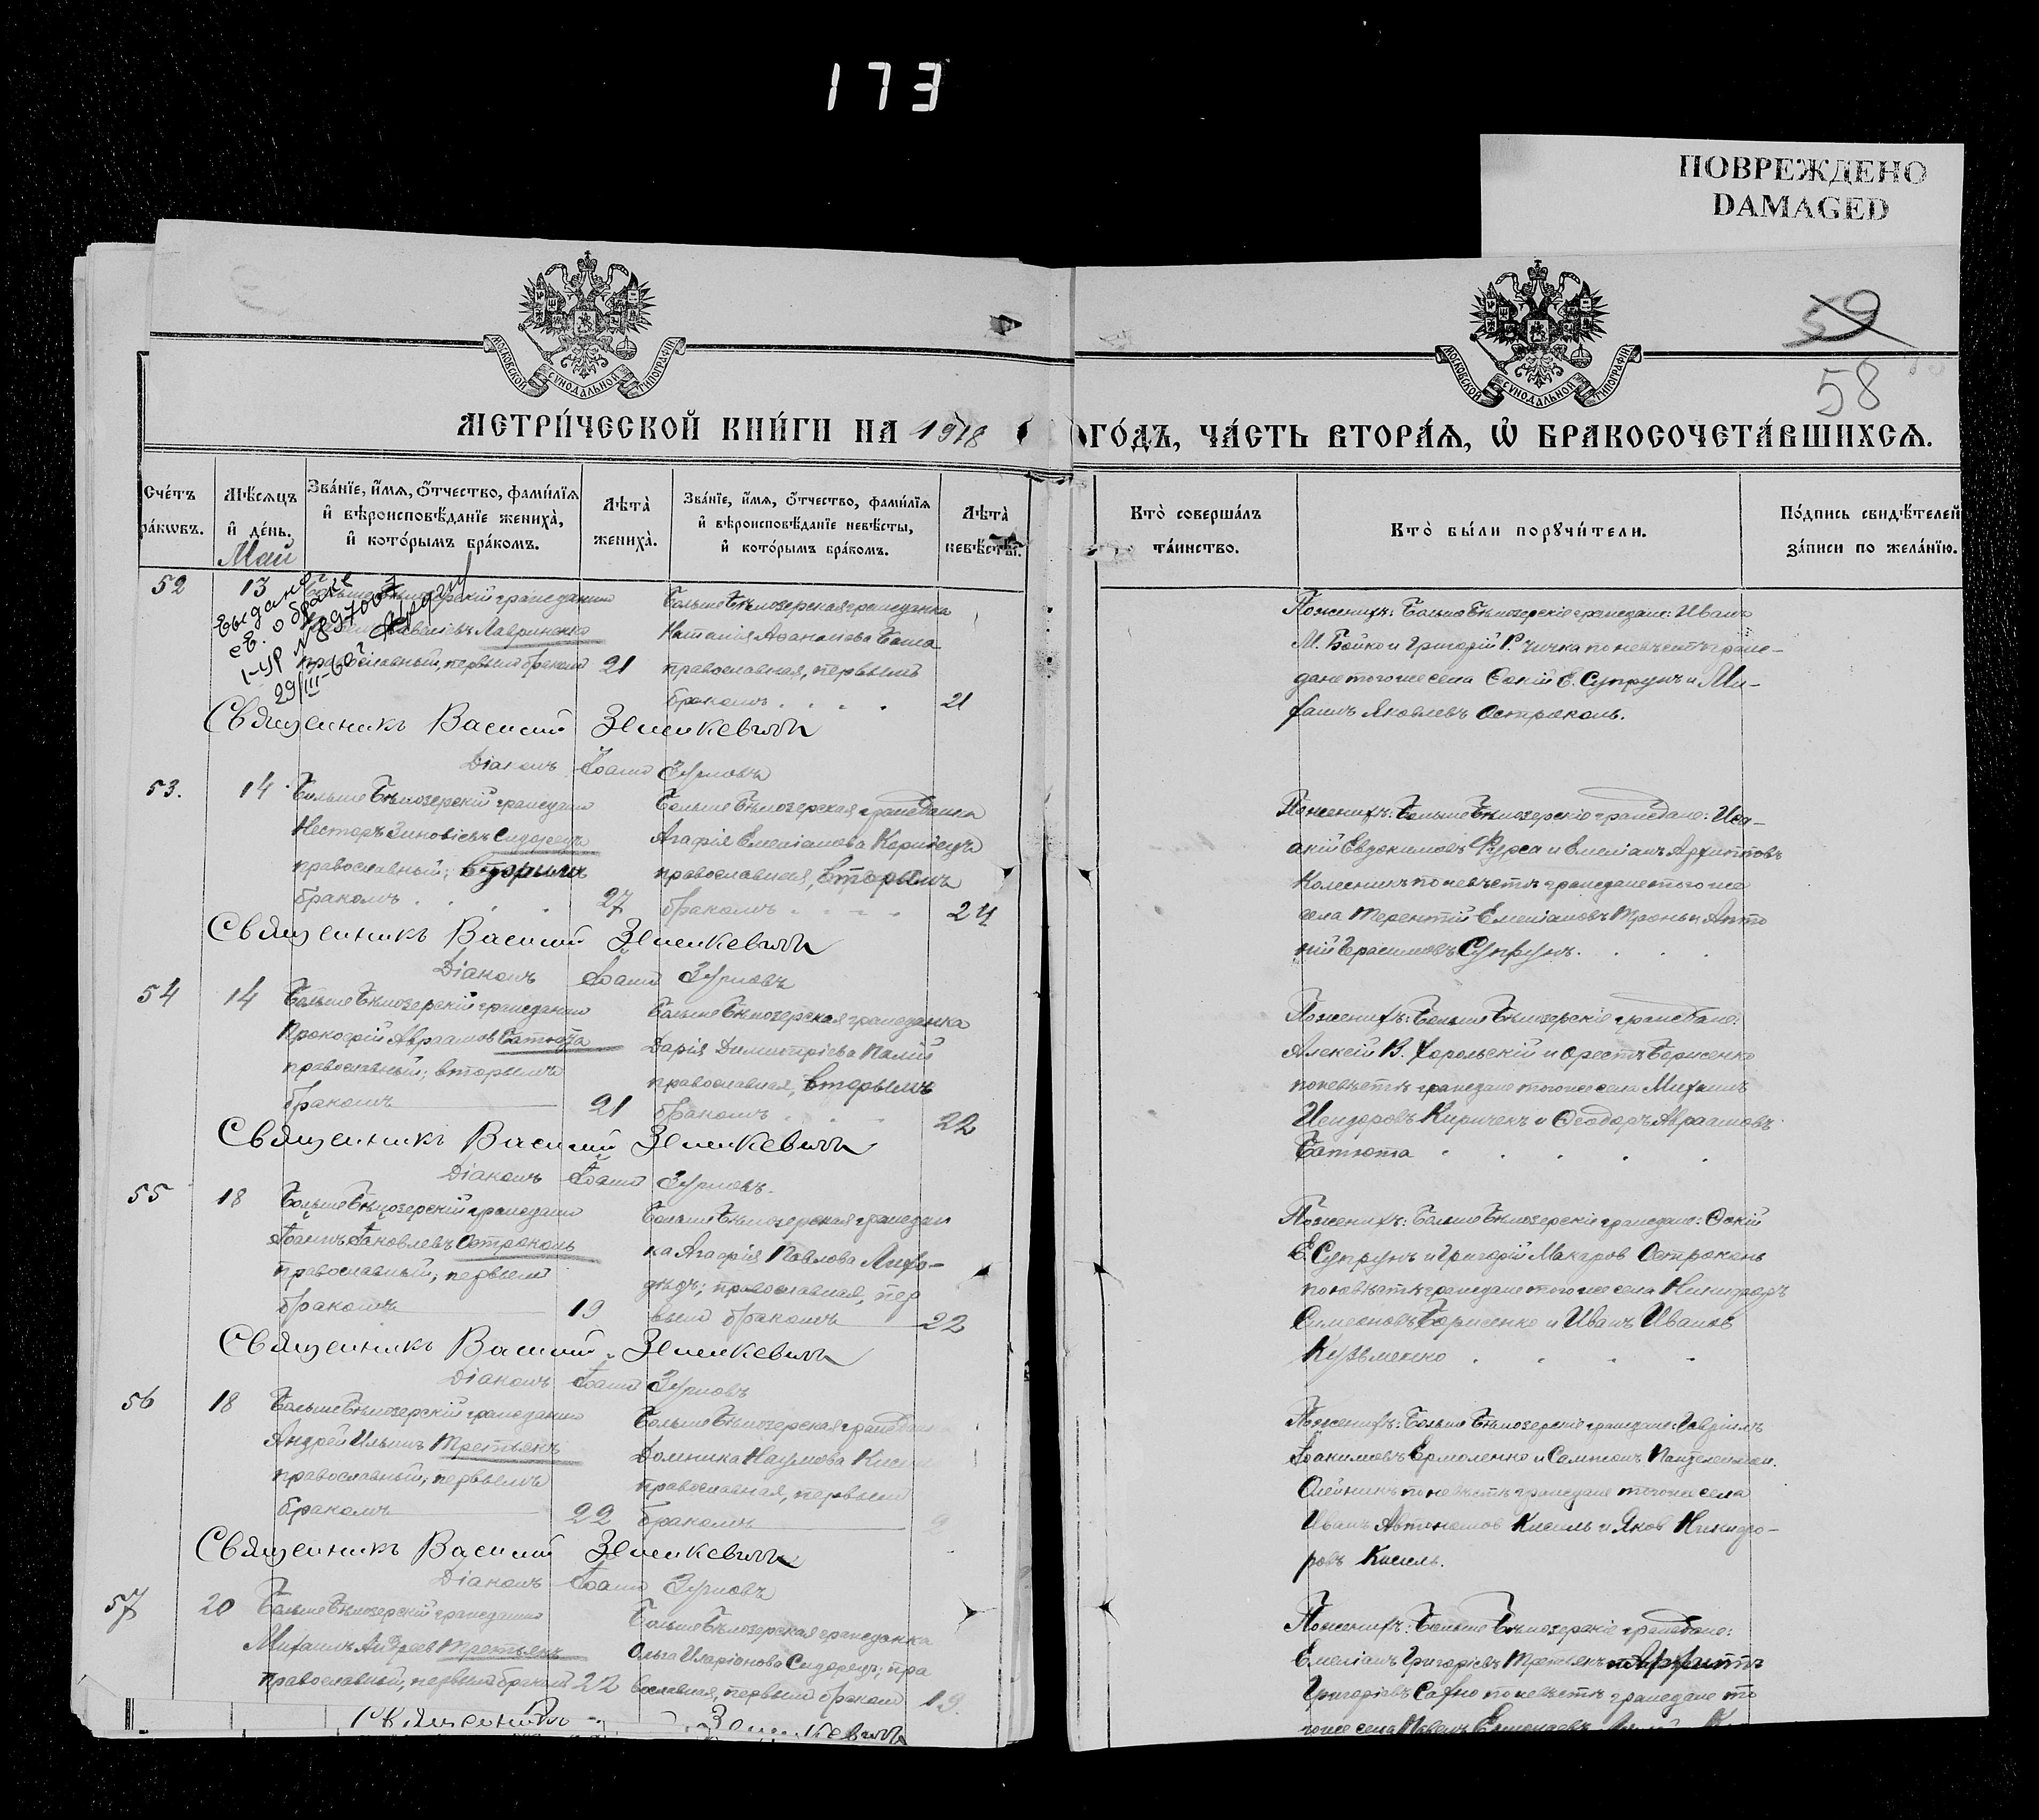 173
ПОВРЕЖДЕНО
DAMAGED
МОСКОВСКОЙ СѴНОДАЛЬНОЙ ТИПОГРАФІИ
МОСКОВСКОЙ СѴНОДАЛЬНОЙ ТИПОГРАФІИ
59
58
МЕТРИ́ЧЕСКОЙ КНИ́ГИ НА 1918
ГО́ДЪ, ЧА́СТЬ ВТОРА́Я, Ѡ҆ БРАКОСОЧЕТА́ВШИХСѦ.
Сче́тъ
ра́кѡвъ.
Мѣ́сѧцъ
и҆ де́нь.
Зва́нїе, и҆́мѧ, ѻ҆́тчество, фами́лїѧ
и҆ вѣроисповѣ́данїе жениха̀,
и҆ кото́рымъ бра́комъ.
Лѣ́та
жениха̀.
Зва́нїе, и҆́мѧ, ѻ҆́тчество, фами́лїѧ
и҆ вѣроисповѣ́данїе невѣ́сты,
и҆ кото́рымъ бра́комъ.
Лѣ́та
невѣ́сты.
Кто̀ соверша́лъ
та́инство.
Кто̀ бы́ли порꙋчи́тели.
По́дпись свидѣ́телей
за́писи по жела́нїю.
Май
52
13
Павловъ Лавриненко
православный, первымъ бракомъ 21
29/III-60 г
Больше Бѣлозерская гражданка
Наталія Афанасіева Баша
православная, первымъ
бракомъ . . . . 21
Священникъ Василій Зенкевичъ
Діаконъ Іоаннъ
По женихѣ: Больше Бѣлозерскіе граждане: Иванъ
М. Бойко и Григорій Р. Чичка по невѣстѣ граж-
дане того же села Оскій Е. Супрунъ и Ми-
хаилъ Яковлевъ Остроконь.
53.
14
Больше Бѣлозерскій гражданинъ
Несторъ Зиновіевъ Сидорецъ
православный; вторымъ
бракомъ . . . . 27
Больше Бѣлозерская гражданка
Агафія Емеліанова Коринецъ
православная, вторымъ
бракомъ . . . . 24
Священникъ Василій Зенкевичъ
Діаконъ Іоаннъ
По женихѣ: Больше Бѣлозерскіе граждане: Иса-
акій Евдокимовъ Фурса и Емеліанъ Архипповъ
Колесникъ по невѣстѣ граждане того же
села Терентій Емеліановъ Тронь и Анто
ній Герасимовъ Супрунъ. . . .
54
14
Больше Бѣлозерскій гражданинъ
Прокофій Авраамовъ Батюта
православный; вторымъ
бракомъ 21
Больше Бѣлозерская гражданка
Дарія Димитріева Палій
православная, вторымъ
бракомъ . . . 22
Священникъ Василій Зенкевичъ
Діаконъ Іоаннъ
По женихѣ: Больше Бѣлозерскіе граждане:
Алексій В. Хорольскій и Орестъ Борисенко
по невѣстѣ граждане того же села Михаилъ
Исидоровъ Киричекъ и Ѳеодоръ Авраамовъ
Батюта . . . . .
55
18
Больше Бѣлозерскій гражданинъ
Іоаннъ Іаковлевъ Остроконь
православный; первымъ
бракомъ 19
Больше Бѣлозерская граждан
ка Агафія Павлова Лихо-
дѣдъ; православная, пер
вымъ бракомъ 22
Священникъ Василій Зенкевичъ
Діаконъ Іоаннъ
По женихѣ: Больше Бѣлозерскіе граждане: Оскій
Е. Супрунъ и Григорій Макаров Остроконь
по невѣстѣ граждане того же села Никифоръ
Симеоновъ Борисенко и Иванъ Иванов
Кузьменко . . . .
56
18
Больше Бѣлозерскій гражданинъ
Андрей Ильинъ Третьякъ
православный; первымъ
бракомъ 22
Больше Бѣлозерская гражданка
Домника Наумова
православная, первымъ
бракомъ
Священникъ Василій Зенкевичъ
Діаконъ Іоаннъ
По женихѣ: Больше Бѣлозерскіе граждане: Гавріилъ
Іоакимовъ Ермоленко и Сампсонъ Пантелеимон.
Олейникъ по невѣстѣ граждане того же села
Иванъ Автономов Кисиль и Яков Никифо-
ровъ Кисиль.
57
20
Больше Бѣлозерскій гражданинъ
Михаилъ Андреев Третьякъ
православный, первымъ бракомъ 22
Больше Бѣлозерская гражданка
Ольга Иларіонова Сидорецъ; пра
вославная, первымъ бракомъ 19.
Священникъ Зенкевичъ
По женихѣ: Больше Бѣлозерскіе граждане:
Емеліанъ Григоріевъ Третьякъ Архиппъ
Григоріевъ Сахно по невѣстѣ граждане то
го же села Павелъ